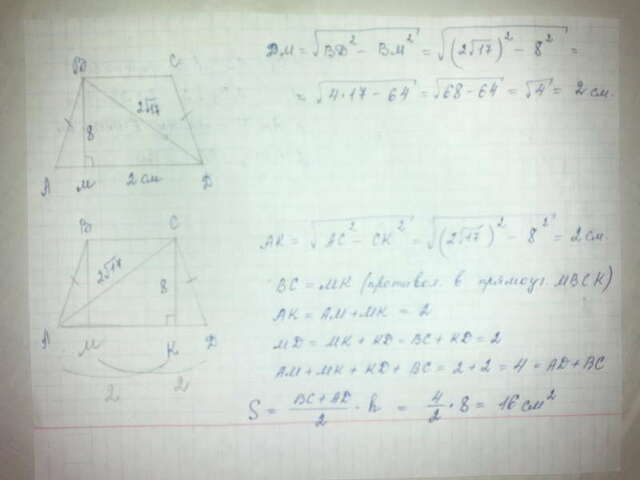 B C
2√17
8
A M 2 см D
DM = √BD² − BM² = √(2√17)² − 8² =
= √4·17 − 64 = √68 − 64 = √4 = 2 см.
B C
2√17
8
A M K D
2 2
AK = √AC² − CK² = √(2√17)² − 8² = 2 см.
BC = MK (противол. в прямоуг. MBCK)
AK = AM + MK = 2
MD = MK + KD = BC + KD = 2
AM + MK + KD + BC = 2 + 2 = 4 = AD + BC
S = BC + AD / 2 · h = 4/2 · 8 = 16 см²